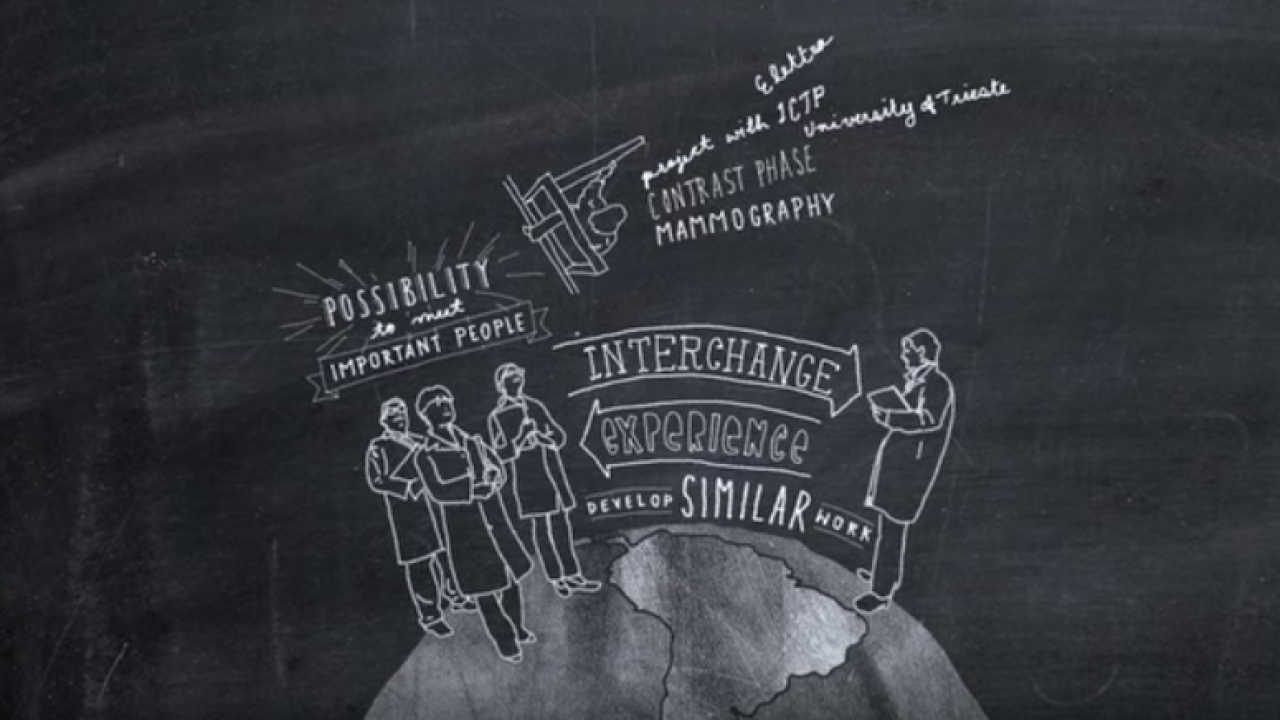 Elettra
project with ICTP
University of Trieste
CONTRAST PHASE
MAMMOGRAPHY
POSSIBILITY
to meet
IMPORTANT PEOPLE
INTERCHANGE
EXPERIENCE
DEVELOP SIMILAR WORK